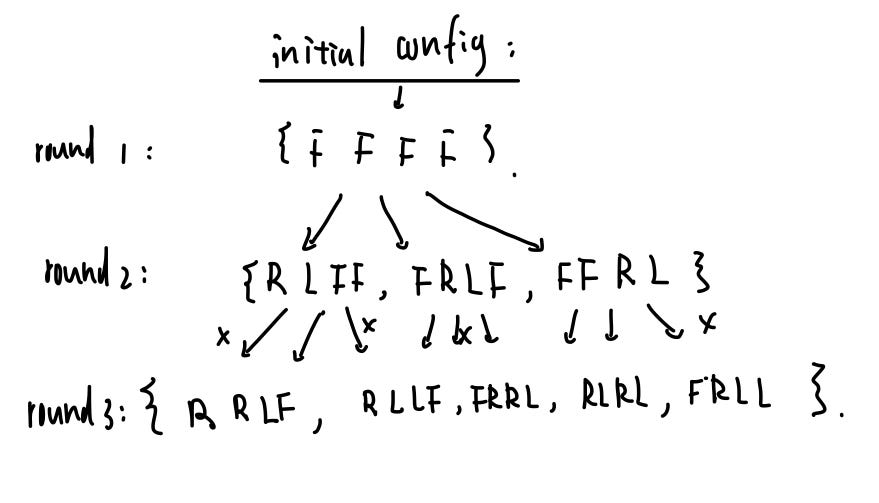 initial config :
round 1 : { F F F F } .
round 2 : { R L F F , F R L F , F F R L }
x x x x
round 3 : { R R L F , R L L F , F R R L , R L R L , F R L L } .